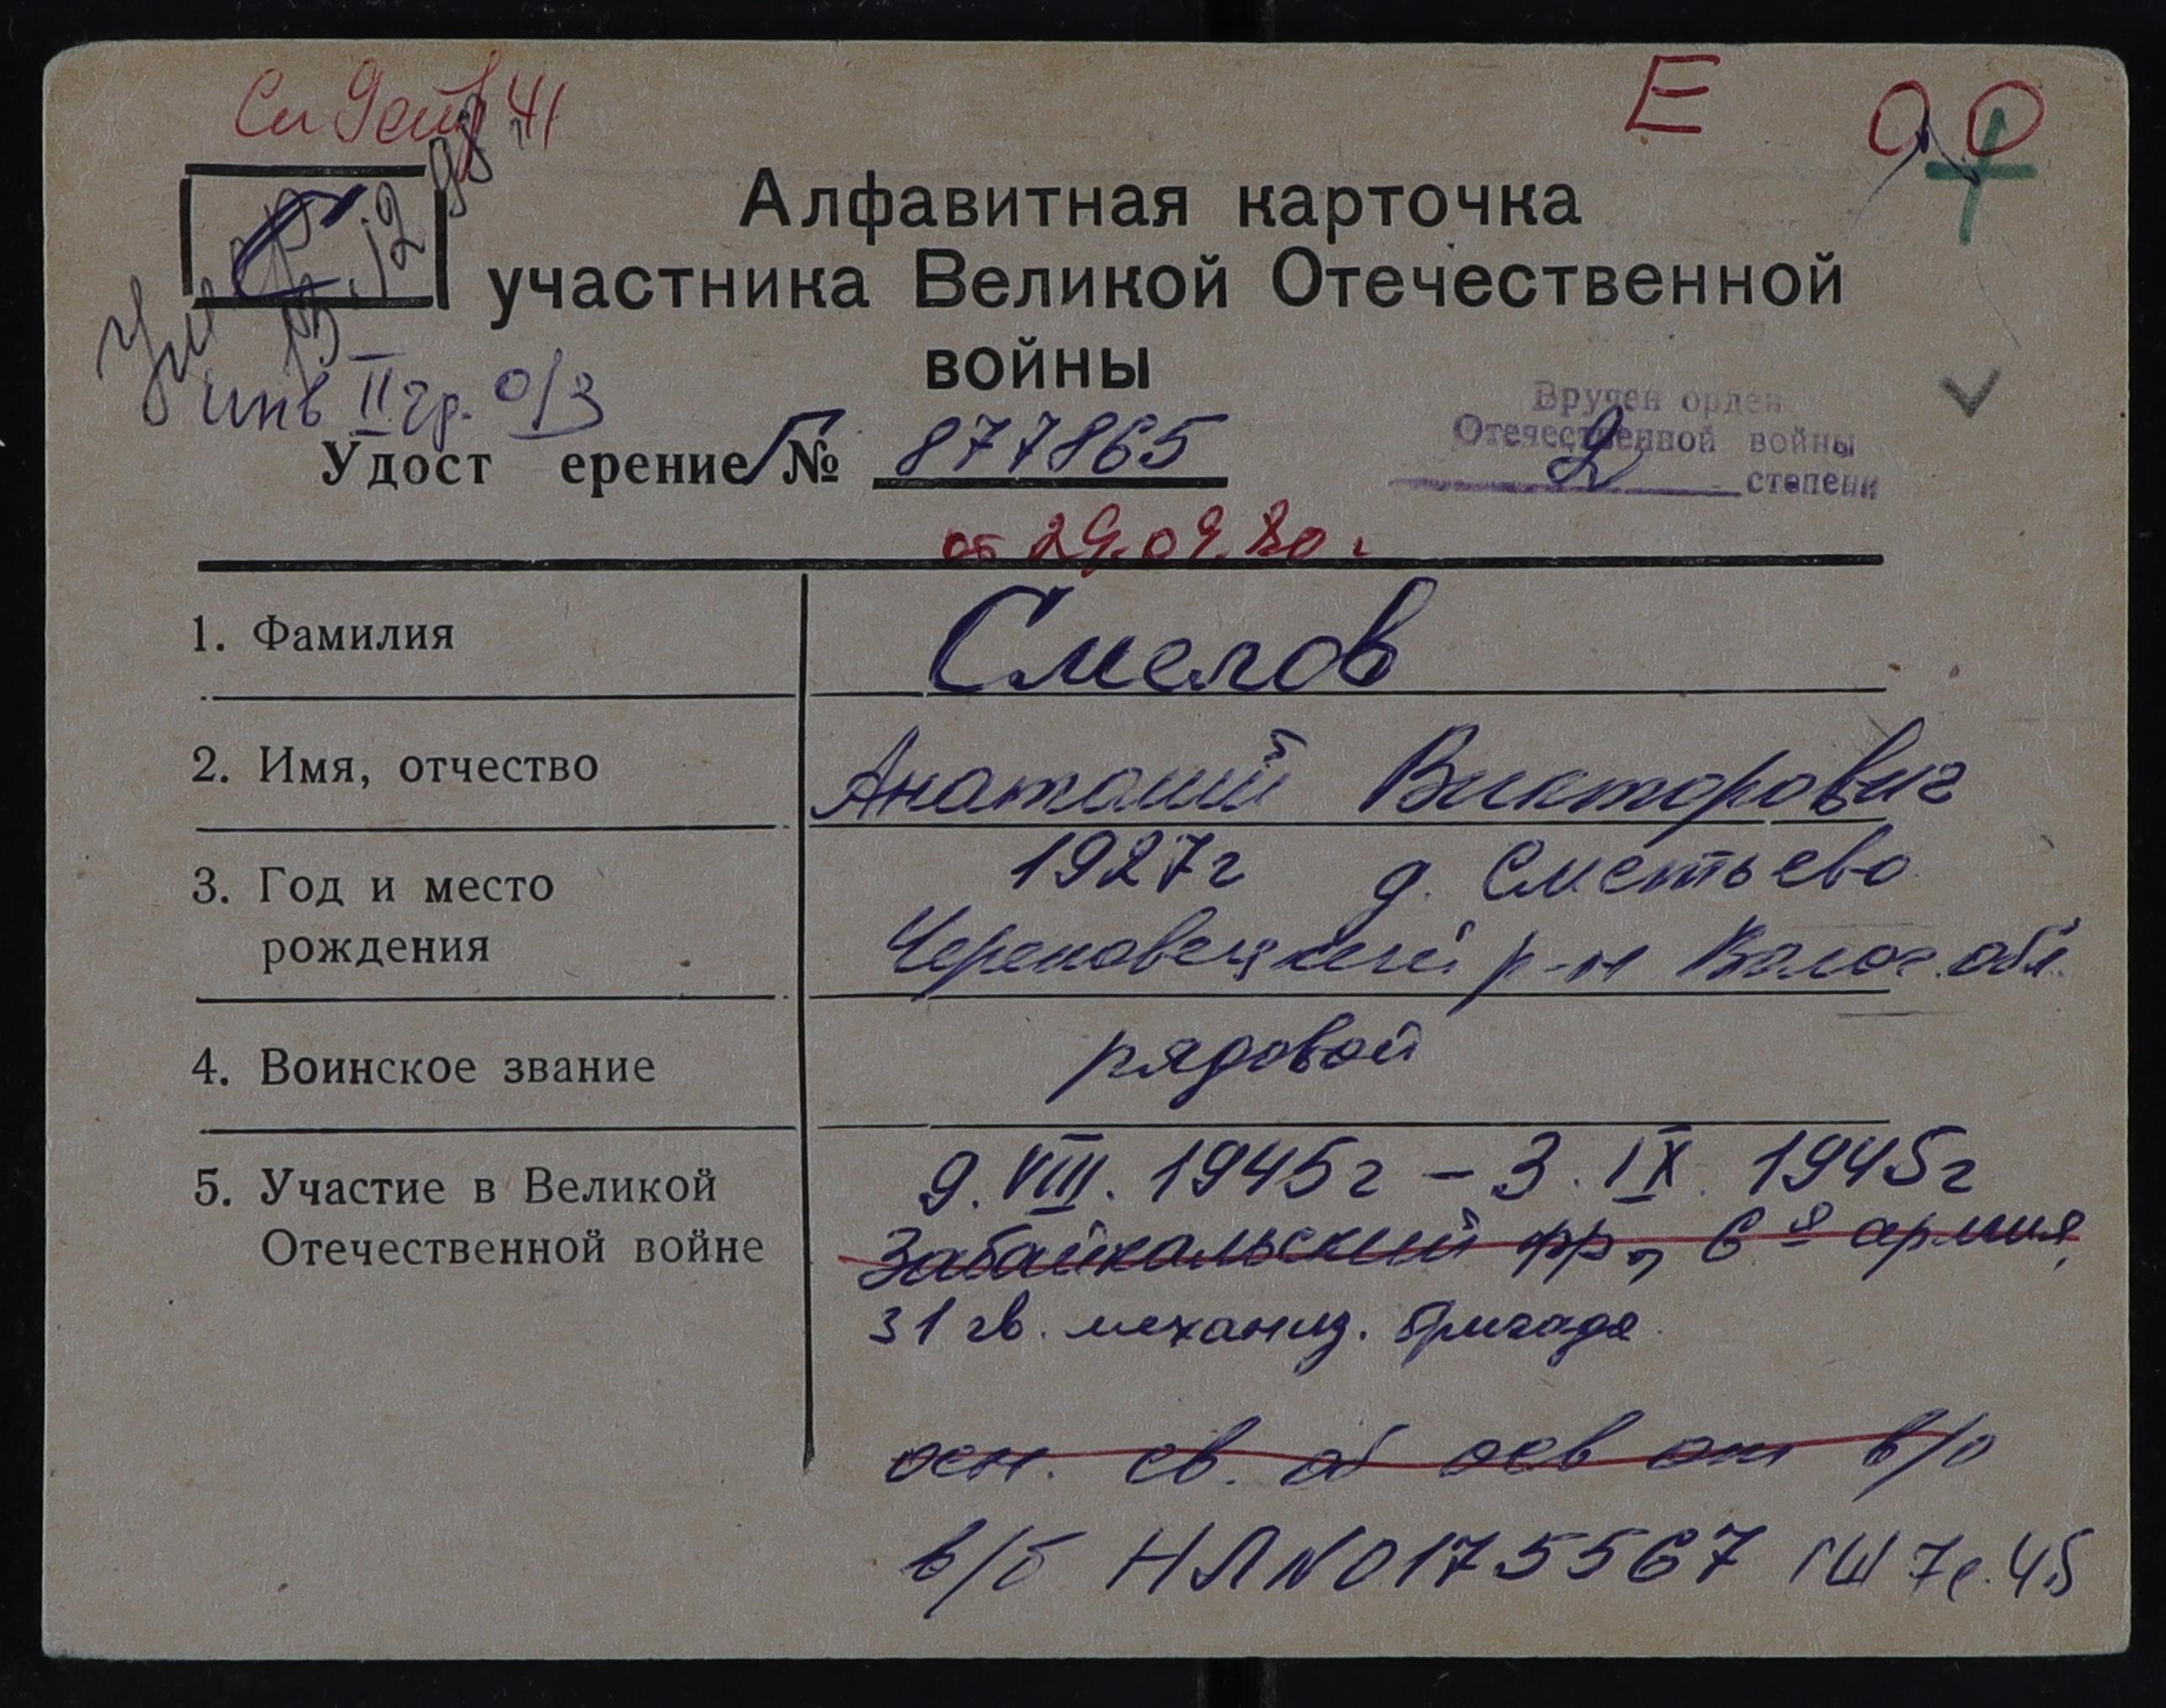 Сп Дейв 41
Е
00
С
Алфавитная карточка
участника Великой Отечественной
войны
Умер 13.12.98
инв II гр. о/з
Удост ерение Г№ 877865
от 29.09.80 г
Вручен орден
Отечественной войны
2 степени
1. Фамилия
Смелов
2. Имя, отчество
Анатолий Викторович
3. Год и место
рождения
1927г д. Сметьево
Череповецкий р-н Волог. обл.
4. Воинское звание
рядовой
5. Участие в Великой
Отечественной войне
9.VIII.1945г – 3.IX.1945г
Забайкальский фр, 6я армия,
31 гв. механиз. бригада
осн. св. об осв от в/о
в/б НЛ N0175567